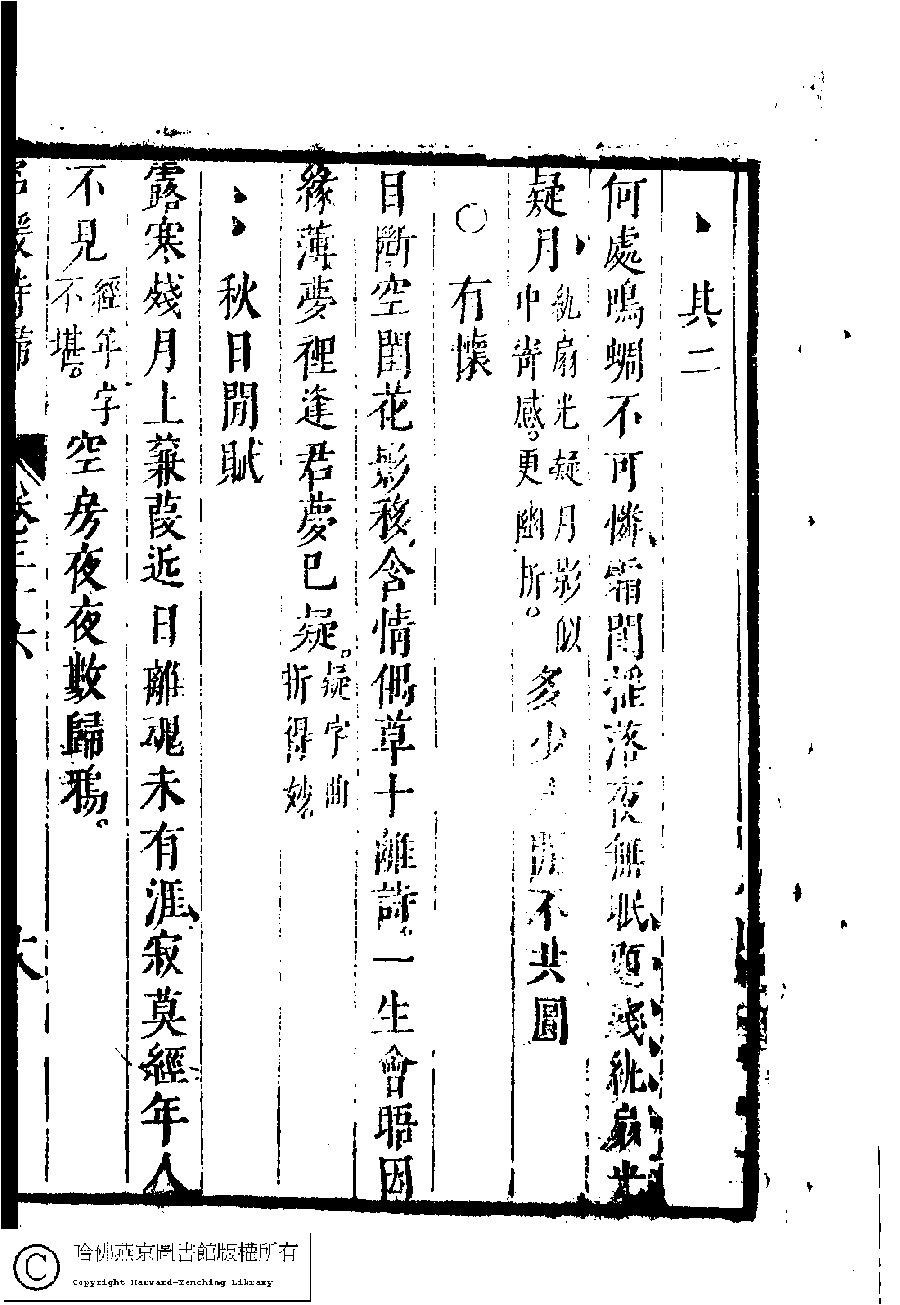 其二
何處鳴蜩不可憐霜閨漏落夜無眠題殘紈扇光
疑月紈扇光疑月影似中寄感更幽折多少開不共圓
有懷
目斷空閨花影移含情偶草十離詩一生會晤因
緣薄夢裡逢君夢已疑疑字曲折得妙
秋日閒賦
露寒殘月上蒹葭近日離魂未有涯寂莫經年人
不見經年字不堪空房夜夜數歸鴉
名媛詩歸
卷三十六
六
哈佛燕京圖書館版權所有
Copyright Harvard-Yenching Library